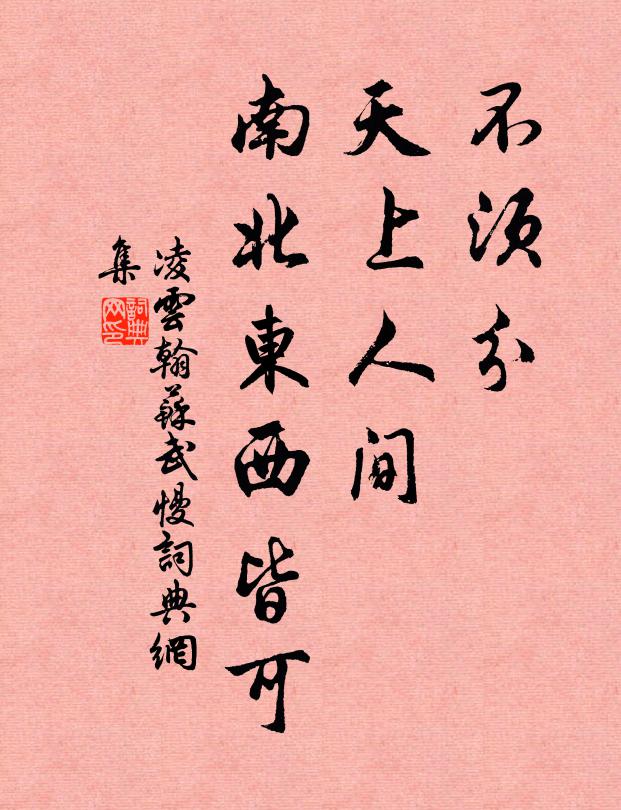 不須分
天上人間
南北東西皆可
凌雲翰蘇武慢詞典網
集
詞典
网印